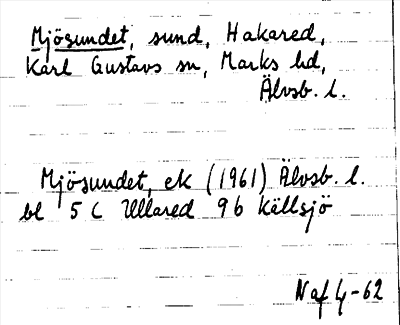 Mjösundet, sund, Hakared,
Karl Gustavs sn, Marks hd,
Älvsb. l.
Mjösundet, ek (1961) Älvsb. l.
bl 5 C Ullared 9 b Källsjö
Naf 4-62